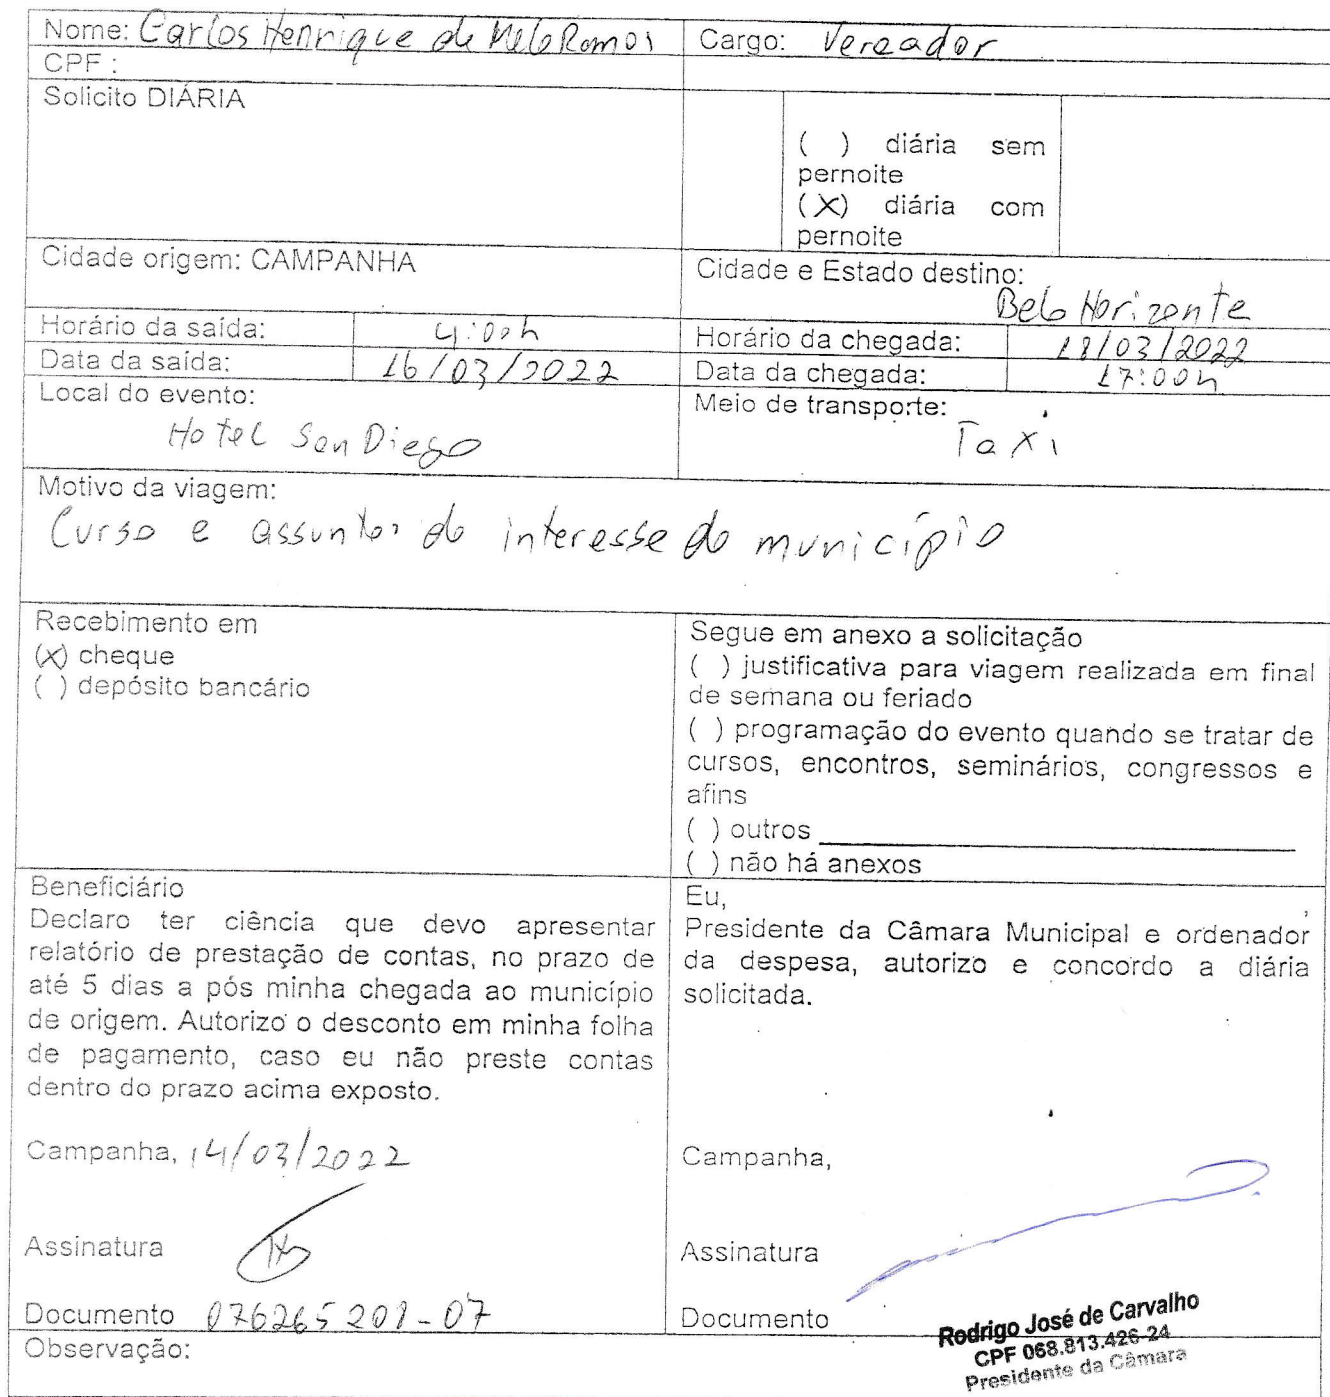 Nome: Carlos Henrique de Melo Ramos
Cargo: Vereador
CPF :
Solicito DIÁRIA
( ) diária sem
pernoite
(X) diária com
pernoite
Cidade origem: CAMPANHA
Cidade e Estado destino:
Belo Horizonte
Horário da saída: 4:00h
Horário da chegada: 18/03/2022
Data da saída: 16/03/2022
Data da chegada: 17:00h
Local do evento:
Hotel San Diego
Meio de transporte:
Taxi
Motivo da viagem:
Curso e assuntos do interesse do município
Recebimento em
(X) cheque
( ) depósito bancário
Segue em anexo a solicitação
( ) justificativa para viagem realizada em final
de semana ou feriado
( ) programação do evento quando se tratar de
cursos, encontros, seminários, congressos e
afins
( ) outros
( ) não há anexos
Beneficiário
Declaro ter ciência que devo apresentar
relatório de prestação de contas, no prazo de
até 5 dias a pós minha chegada ao município
de origem. Autorizo o desconto em minha folha
de pagamento, caso eu não preste contas
dentro do prazo acima exposto.
Campanha, 14/03/2022
Assinatura
Documento 076265201-07
Eu, ,
Presidente da Câmara Municipal e ordenador
da despesa, autorizo e concordo a diária
solicitada.
Campanha,
Assinatura
Documento
Rodrigo José de Carvalho
CPF 068.813.426-24
Presidente da Câmara
Observação: